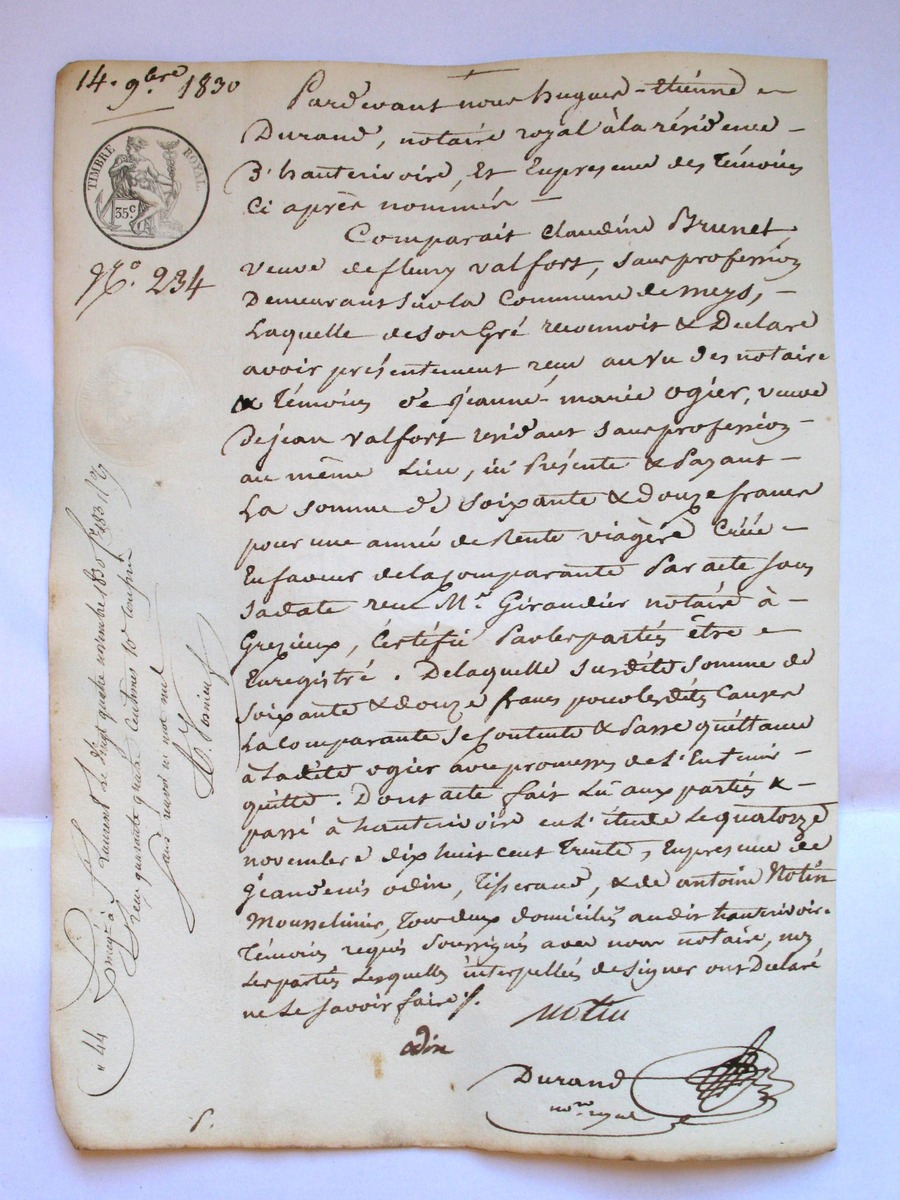 14. 9bre 1830
TIMBRE ROYAL
35 c.
No. 234
Pardevant nous hugues-étienne
Durand, notaire royal à la résidence
d'hauterivoire, Et En presence des témoins
Ci après nommés
Comparait Claudine Brunet,
veuve de fleury valfort, sans profession
Demeurant sur la Commune de meys,
Laquelle de son Gré reconnoit & Declare
avoir présentement reçu au vu des notaire
& témoins de jeanne-marie ogier, veuve
De jean valfort residant sans profession
au même Lieu, ici Présente & Payant
La somme de soixante & douze francs
pour une année de Rente viagère Créée
En faveur de la comparante Par acte sous
sa date reçu Me. Giraudier notaire à
Grezieux, Certifié Par les partés être
Enregistré. De laquelle susdite somme de
soixante & douze francs pour les dits Causes
La Comparante se Contente & Passe quittance
à la dite ogier avec promesses de l'En tenir
quitte. Dont acte fait Lu aux parties &
passé à hauterivoire en L'étude Le quatorze
novembre dix huit cent trente, En presence de
jean denis odin, Tisserand, & de antoine Notin
Mousselinier, tous deux domiciliés au dit hauterivoire
témoins requis soussignés avec nous notaire, non
Les partés Lesquelles interpellés de signer ont Déclaré
ne Le savoir faire ./.
Notin
odin
Durand
nore royal
St Laurent Le vingt quatre novembre 1830 fo 183
reçu quarante quatre Centimes 10e Compris
sans renvoi ni mot nul
" 44